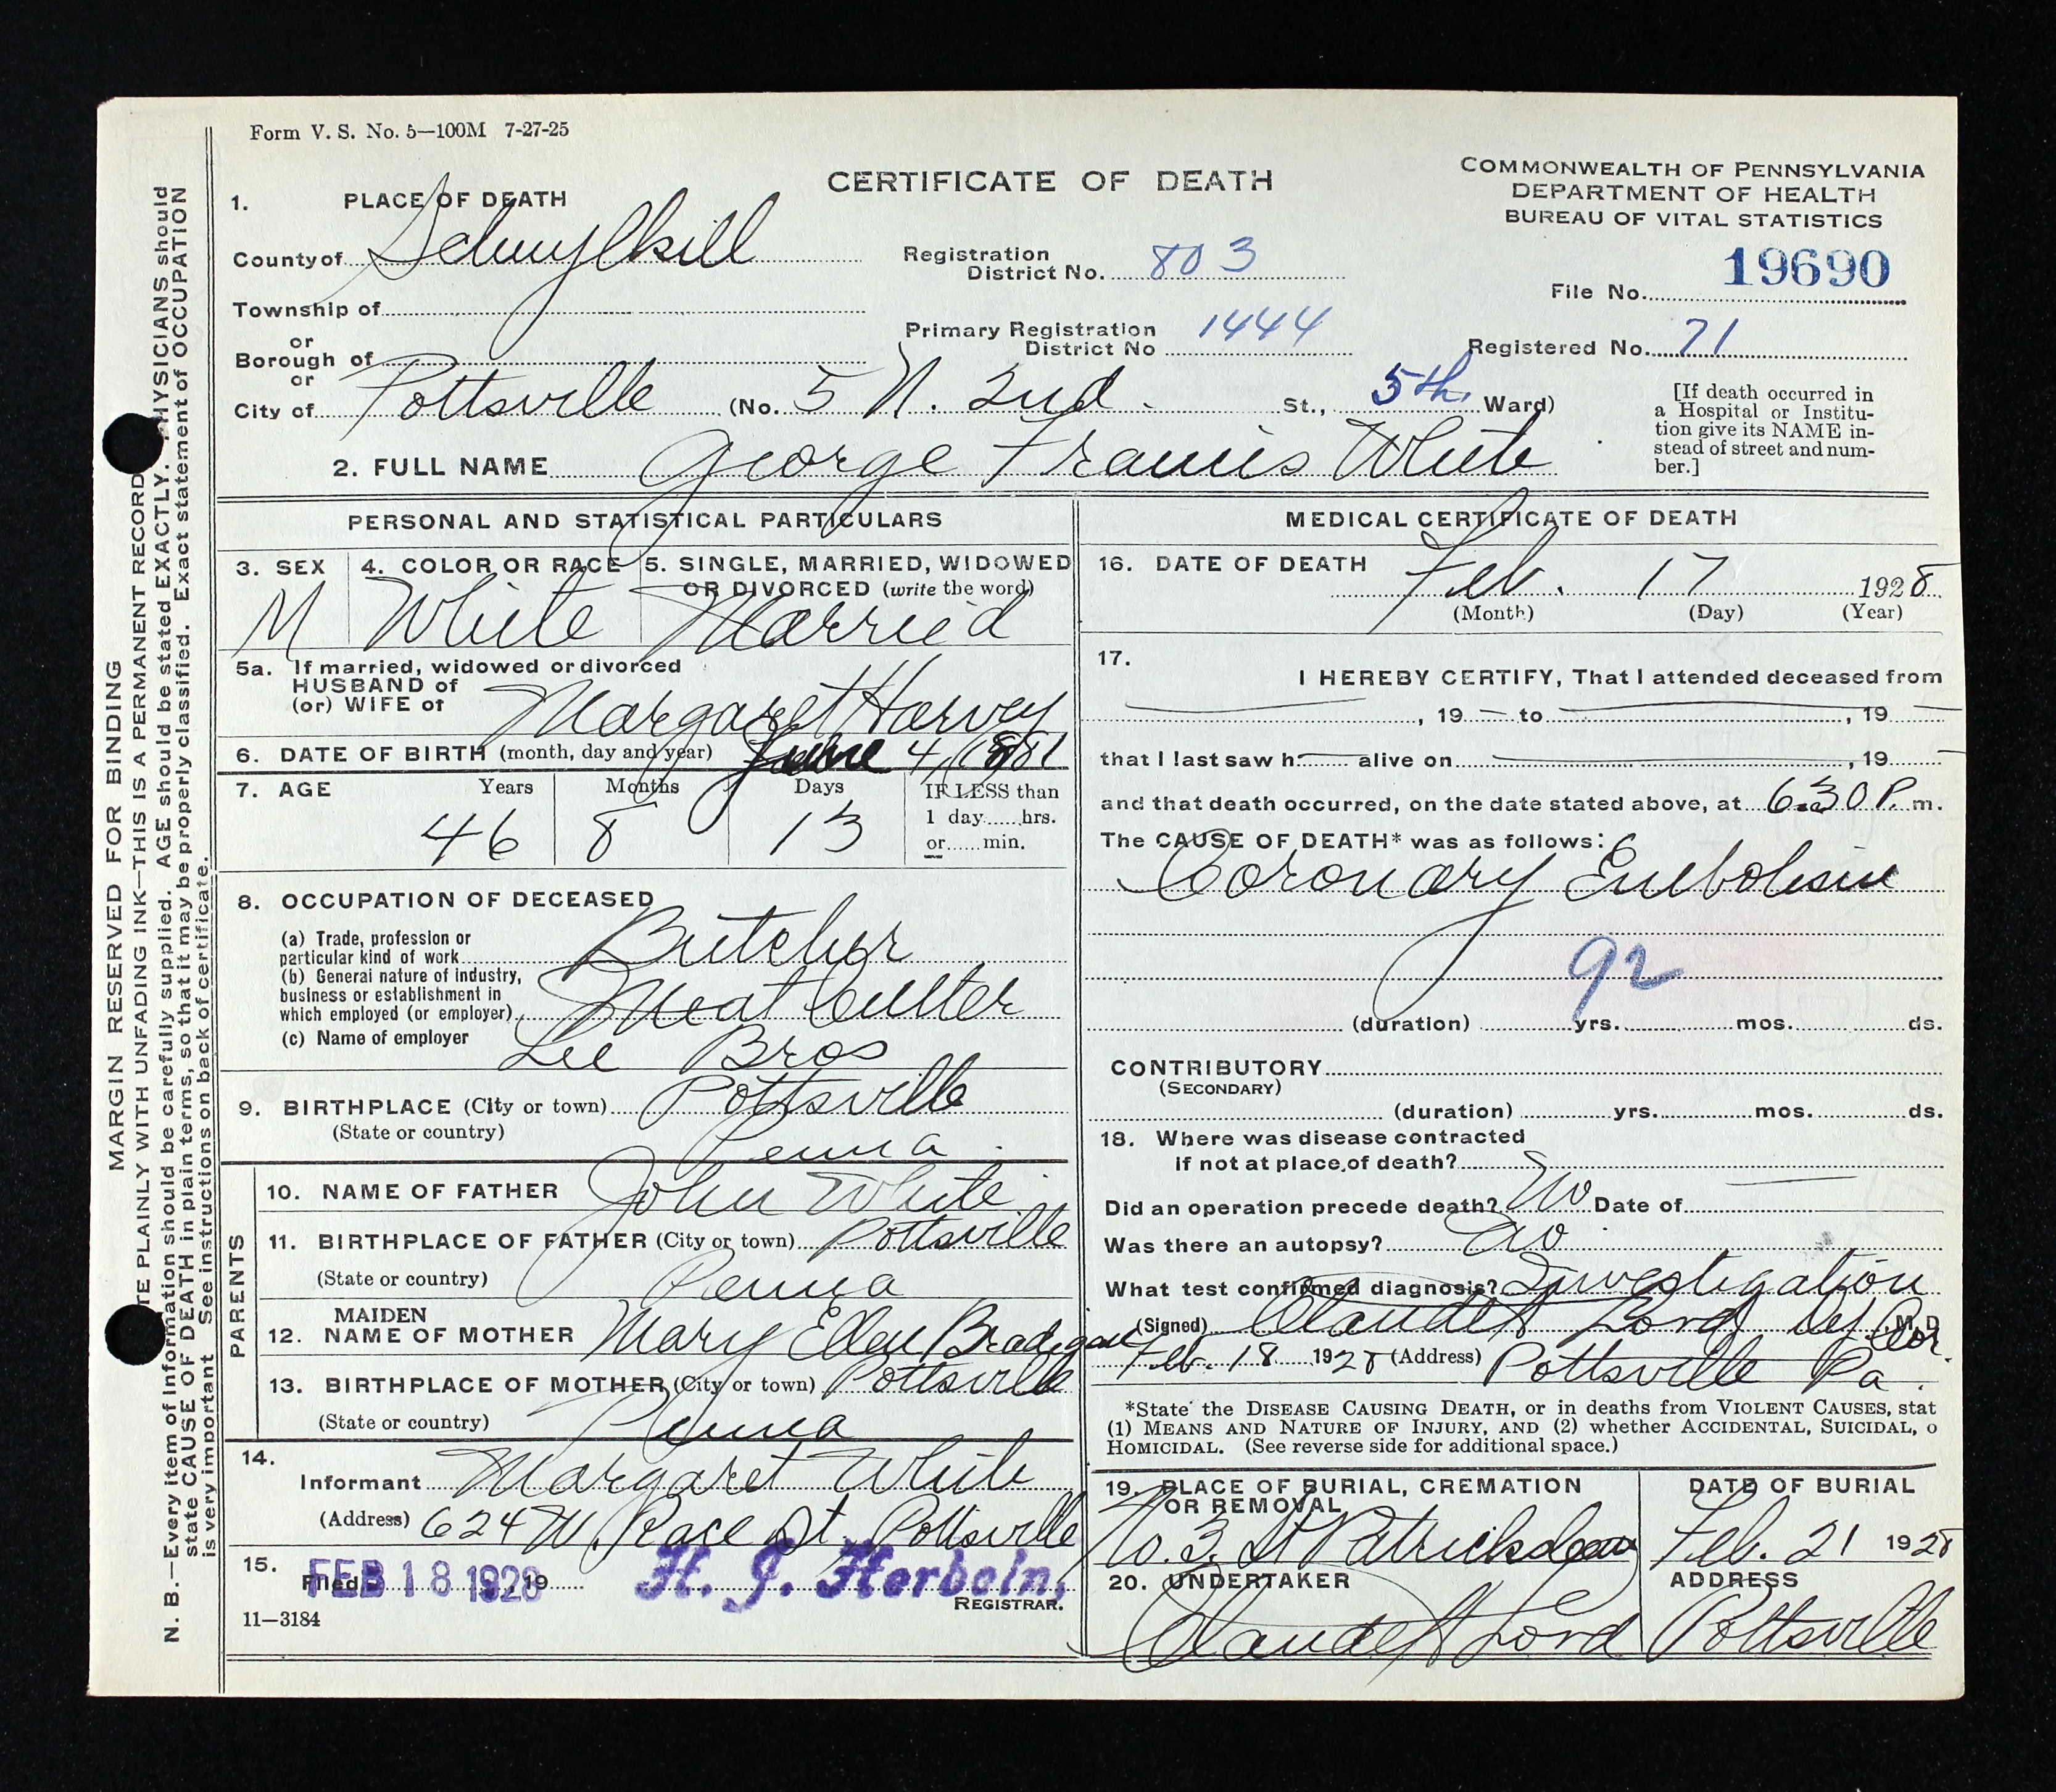 Form V. S. No. 5—100M 7-27-25
CERTIFICATE OF DEATH
COMMONWEALTH OF PENNSYLVANIA
DEPARTMENT OF HEALTH
BUREAU OF VITAL STATISTICS
1. PLACE OF DEATH
County of Schuylkill
Registration District No. 803
File No. 19690
Township of
or
Primary Registration District No 1444
Registered No. 71
Borough of
or
City of Pottsville (No. 5 N. 2nd. St., 5th. Ward)
[If death occurred in
a Hospital or Institu-
tion give its NAME in-
stead of street and num-
ber.]
2. FULL NAME George Francis White
PERSONAL AND STATISTICAL PARTICULARS
3. SEX M
4. COLOR OR RACE White
5. SINGLE, MARRIED, WIDOWED
OR DIVORCED (write the word)
Married
5a. If married, widowed or divorced
HUSBAND of
(or) WIFE of Margaret Harvey
6. DATE OF BIRTH (month, day and year) June 4, 1881
7. AGE Years Months Days IF LESS than
46 8 13 1 day......hrs.
or......min.
8. OCCUPATION OF DECEASED
(a) Trade, profession or
particular kind of work Butcher
(b) General nature of industry,
business or establishment in
which employed (or employer) Meat Cutter
(c) Name of employer Lee Bros
9. BIRTHPLACE (City or town) Pottsville
(State or country) Penna.
PARENTS
10. NAME OF FATHER John White
11. BIRTHPLACE OF FATHER (City or town) Pottsville
(State or country) Penna
12. MAIDEN
NAME OF MOTHER Mary Ellen Bradigan
13. BIRTHPLACE OF MOTHER (City or town) Pottsville
(State or country) Penna
14.
Informant Margaret White
(Address) 624 W. Race St. Pottsville
15. Filed FEB 18 1928, 19 H. J. Herbein,
REGISTRAR.
11—3184
MEDICAL CERTIFICATE OF DEATH
16. DATE OF DEATH Feb. 17 1928
(Month) (Day) (Year)
17.
I HEREBY CERTIFY, That I attended deceased from
, 19 — to , 19
that I last saw h alive on , 19
and that death occurred, on the date stated above, at 6:30 P. m.
The CAUSE OF DEATH* was as follows:
Coronary Embolism
92
(duration) yrs. mos. ds.
CONTRIBUTORY
(SECONDARY)
(duration) yrs. mos. ds.
18. Where was disease contracted
if not at place of death?
Did an operation precede death? No Date of —
Was there an autopsy? No
What test confirmed diagnosis? Investigation
(Signed) Claude H Lord Dep Cor. , M. D
Feb. 18 1928 (Address) Pottsville Pa.
*State the DISEASE CAUSING DEATH, or in deaths from VIOLENT CAUSES, stat
(1) MEANS AND NATURE OF INJURY, AND (2) whether ACCIDENTAL, SUICIDAL, o
HOMICIDAL. (See reverse side for additional space.)
19. PLACE OF BURIAL, CREMATION
OR REMOVAL
No. 3. St Patricks Cem
DATE OF BURIAL
Feb. 21 1928
20. UNDERTAKER
Claude H Lord
ADDRESS
Pottsville
MARGIN RESERVED FOR BINDING
TE PLAINLY WITH UNFADING INK—THIS IS A PERMANENT RECORD
N. B.—Every item of information should be carefully supplied. AGE should be stated EXACTLY. PHYSICIANS should
state CAUSE OF DEATH in plain terms, so that it may be properly classified. Exact statement of OCCUPATION
is very important See instructions on back of certificate.